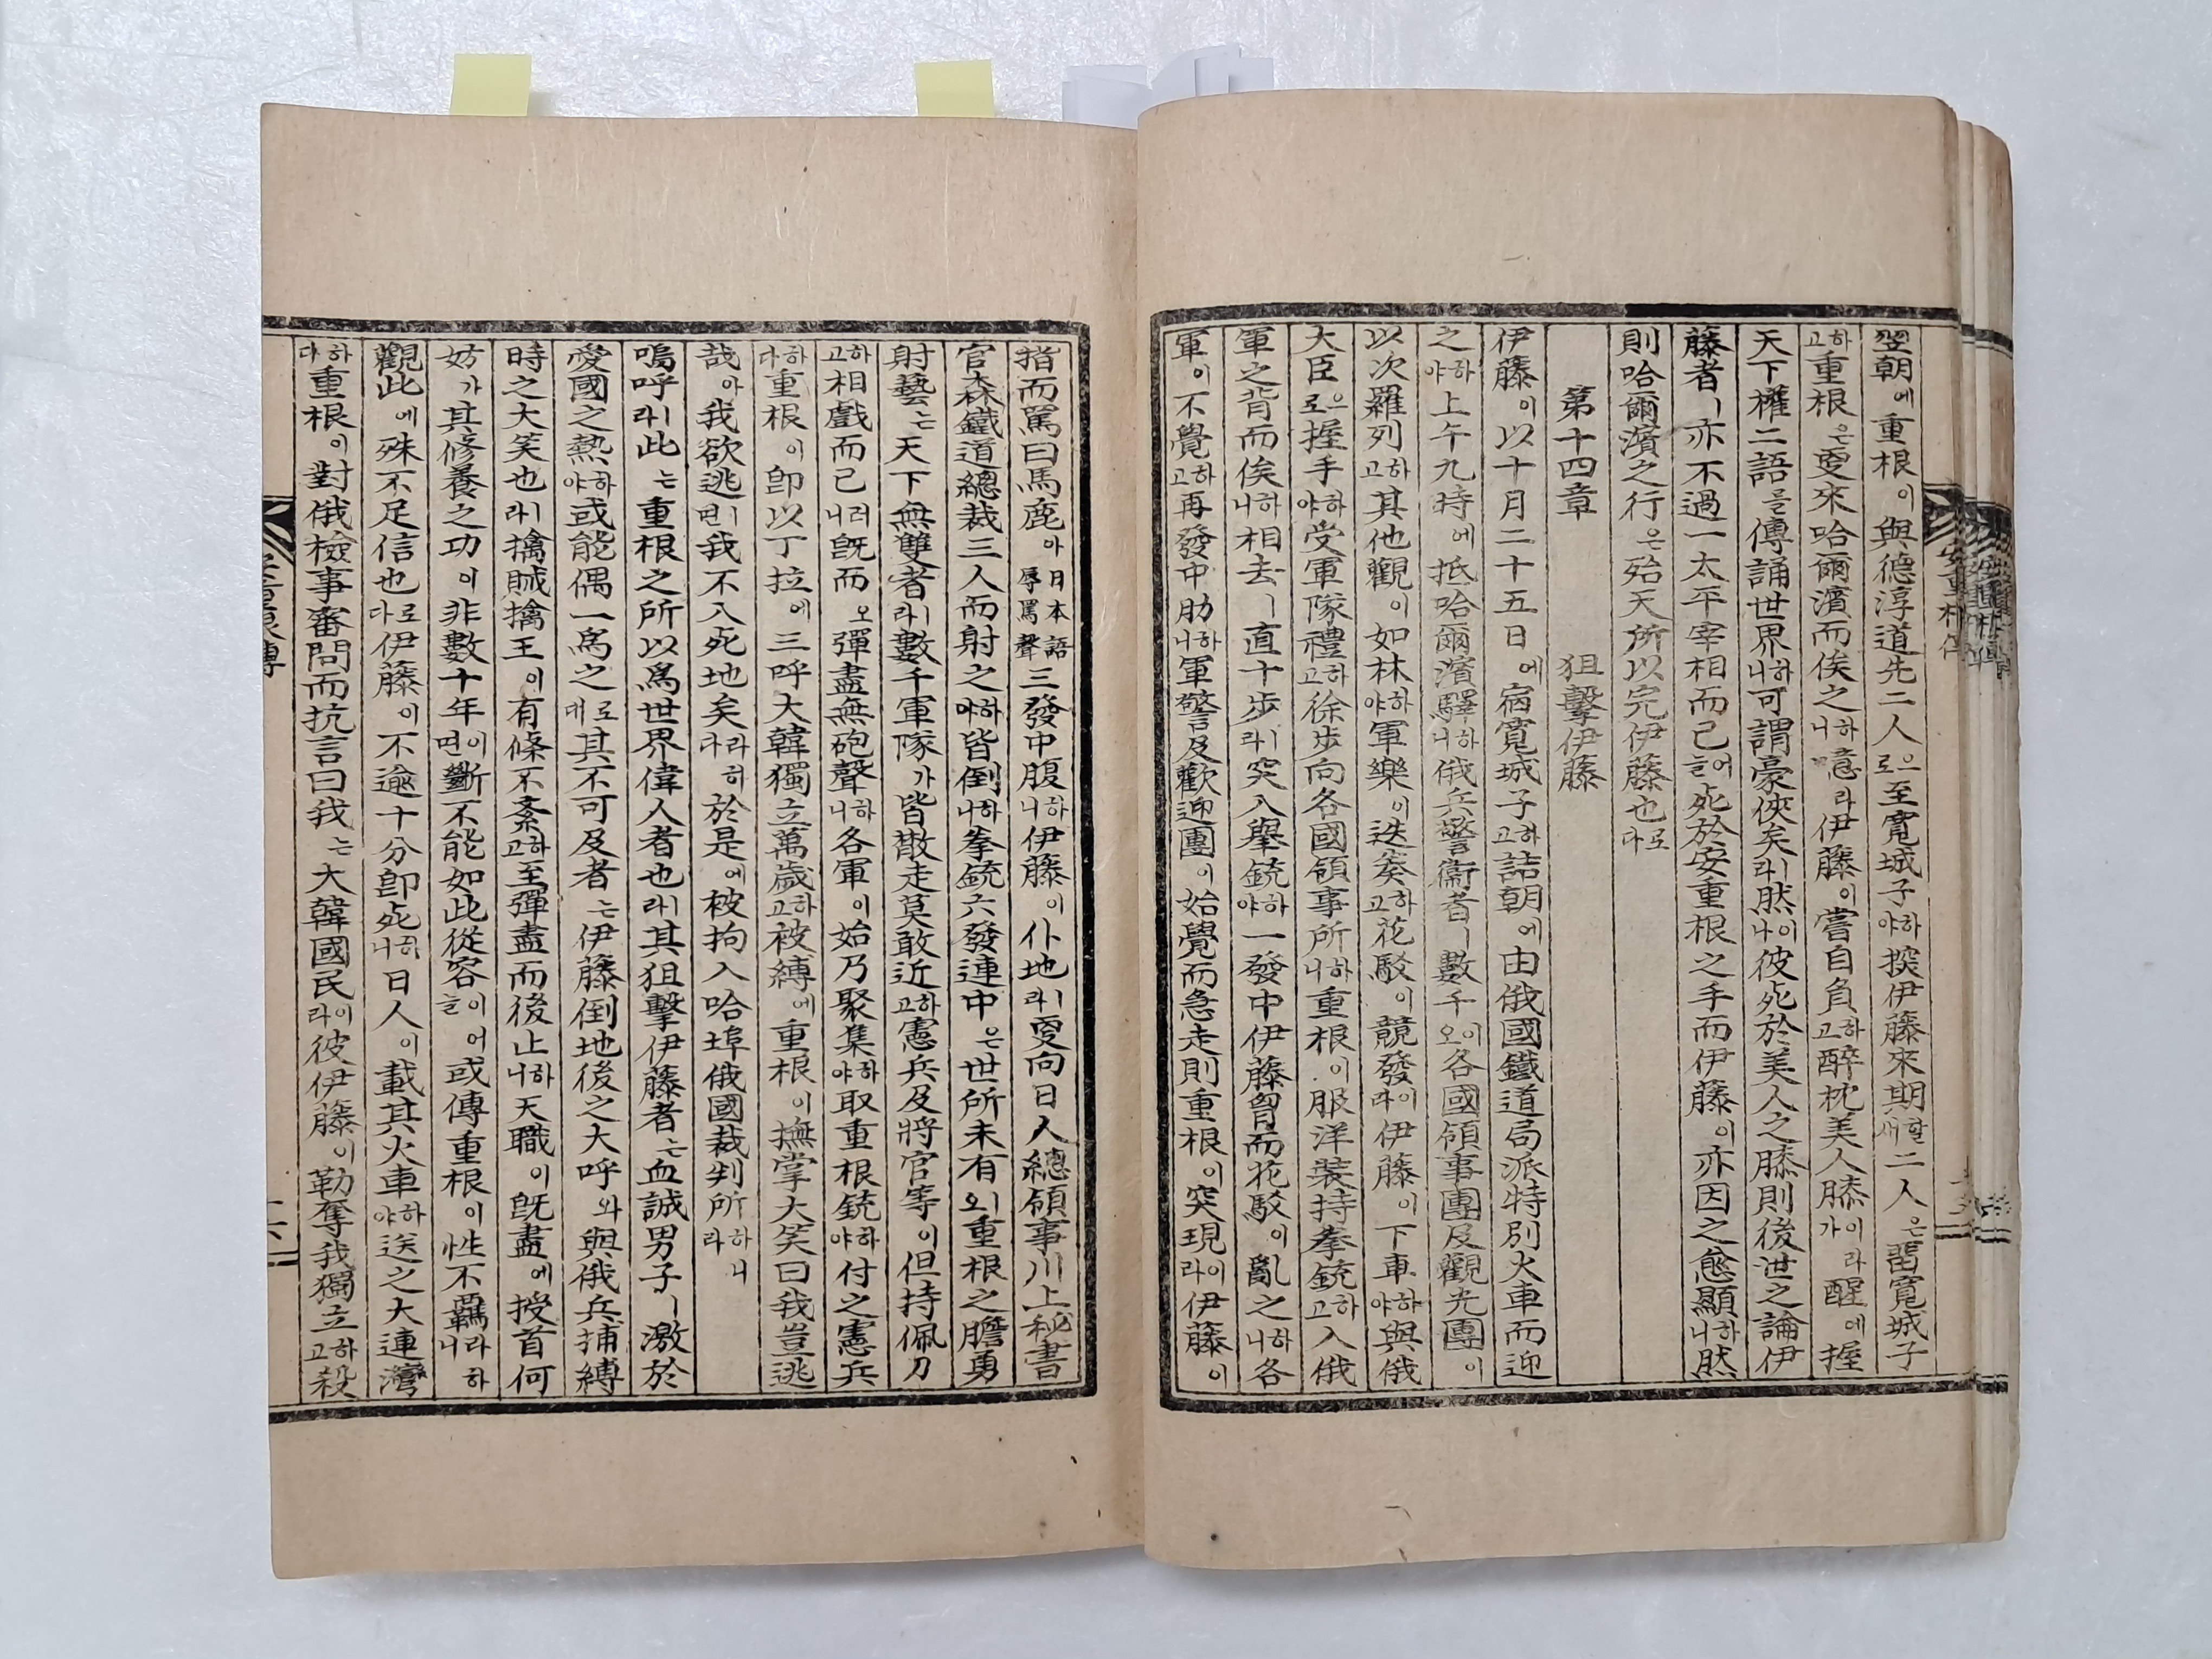 翌朝에重根이與德淳道先二人으로至寬城子하야探伊藤來期할새二人은留寬城子
하고重根은更來哈爾濱而俟之하니噫라伊藤이嘗自負하고醉枕美人膝이가라醒에握
天下權二語를傳誦世界하니可謂豪俠矣라ㅣ然이나彼死於美人之膝則後世之論伊
藤者ㅣ亦不過一太平宰相而已어늘死於安重根之手而伊藤이亦因之愈顯하니然
則哈爾濱之行은殆天所以完伊藤也로다
第十四章 狙擊伊藤
伊藤이以十月二十五日에宿寬城子하고詰朝에由俄國鐵道局派特別火車而迎
之하야上午九時에抵哈爾濱驛하니俄兵警衛者ㅣ數千이오各國領事團及觀光團이
以次羅列하고其他觀이如林하야軍樂이迭奏하고花駁이競發이라伊藤이下車하야與俄
大臣으로握手하야受軍隊禮하고徐步向各國領事所하니重根이服洋裝持拳銃하고入俄
軍之背而俟하니相去ㅣ直十步라ㅣ突入擧銃하야一發中伊藤胷而花駁이亂之하니各
軍이不覺하고再發中肋하니軍警及歡迎團이始覺而急走則重根이突現이라伊藤이
指而罵曰馬鹿아日本語辱罵聲三發中腹하니伊藤이仆地라ㅣ更向日人總領事川上秘書
官森鐵道總裁三人而射之하야皆倒하니拳銃六發連中은世所未有오ㅣ重根之膽勇
射藝는天下無雙者라ㅣ數千軍隊가皆散走莫敢近하고憲兵及將官等이但持佩刀
하고相戲而已러니旣而오彈盡無砲聲하니各軍이始乃聚集하야取重根銃하야付之憲兵
하다重根이卽以丁拉에三呼大韓獨立萬歲하고被縛에重根이撫掌大笑曰我豈逃
哉아我欲逃ㅣ면我不入死地矣라하다於是에被拘入哈埠俄國裁判所하니라
嗚呼라ㅣ此는重根之所以爲世界偉人者也라ㅣ其狙擊伊藤者는血誠男子ㅣ激於
愛國之熱하야或能偶一爲之로대其不可及者는伊藤倒地後之大呼와與俄兵捕縛
時之大笑也라ㅣ擒賊擒王이有條不紊하고至彈盡而後止하니天職이旣盡에授首何
妨가其修養之功이非數十年이면斷不能如此從容이어늘或傳重根이性不羈라하니
觀此에殊不足信也로다伊藤이不逾十分卽死하니日人이載其火車하야送之大連灣
하다重根이對俄檢事審問而抗言曰我는大韓國民이라彼伊藤이勒奪我獨立하고殺